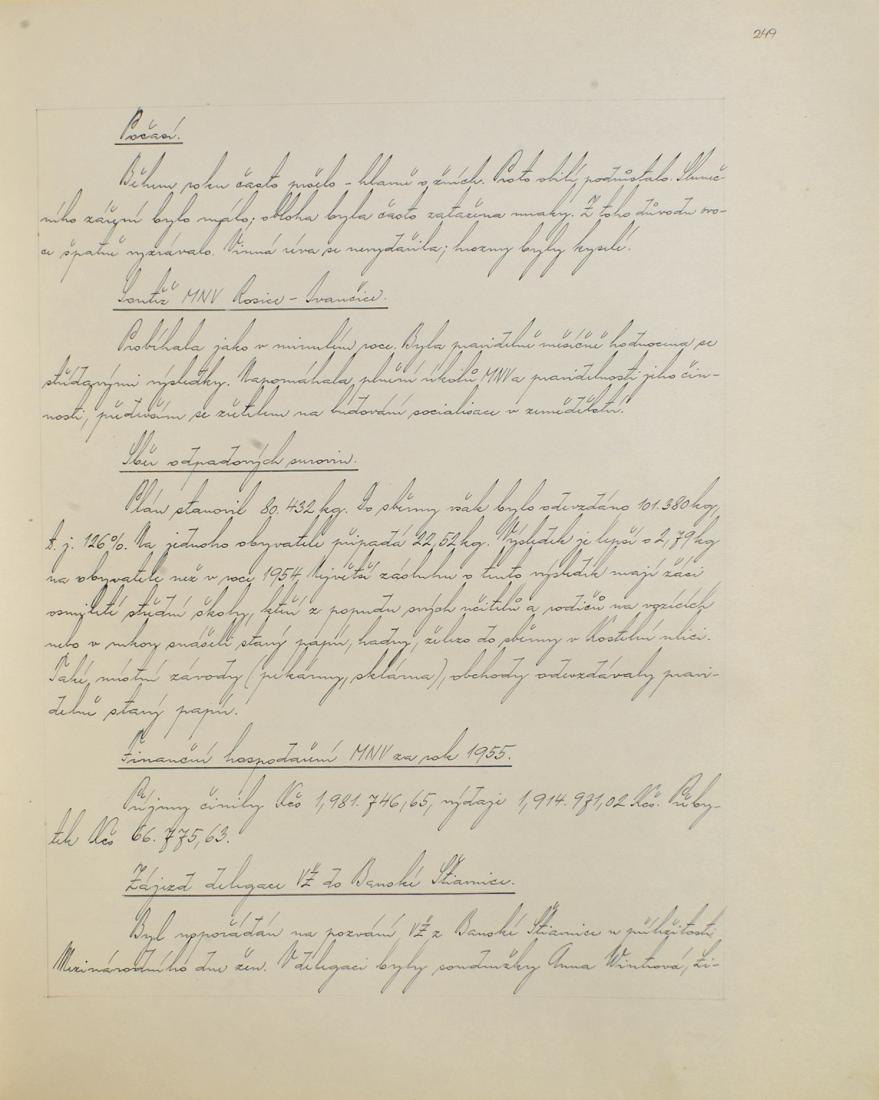 249
Počasí.
Během roku často pršelo - hlavně o žních. Proto obilí podrůstalo. Sluneč-
ního záření bylo málo; obloha byla často zatažena mraky. Z toho důvodu ovo-
ce špatně vyzrávalo. Vinná réva se nevydařila; hrozny byly kyselé.
Soutěž MNV Rosice - Ivančice.
Probíhala jako v minulém roce. Byla pravidelně měsíčně hodnocena se
střídavými výsledky. Napomáhala plnění úkolů MNV a pravidelnosti jeho čin-
nosti, především se zřetelem na budování socialisace v zemědělství.
Sběr odpadových surovin.
Plán stanovil 80.432 kg. Do sběrny však bylo odevzdáno 101.380 kg,
t. j. 126%. Na jednoho obyvatele připadá 22,52 kg. Výsledek je lepší o 2,79 kg
na obyvatele než v roce 1954. Největší zásluhu o tento výsledek mají žáci
osmileté střední školy, kteří z popudu svých učitelů a rodičů na vozících
nebo v rukou snášeli starý papír, hadry, železo do sběrny v Kostelní ulici.
Také místní závody (pekárny, sklárna), obchody odevzdávaly pravi-
delně starý papír.
Finanční hospodaření MNV za rok 1955.
Příjmy činily Kčs 1,981.746,65, výdaje 1,914.971,02 Kčs. Přeby-
tek Kčs 66.775,63.
Zájezd delegace VŽ do Banské Štiavnice.
Byl uspořádán na pozvání VŽ z Banské Štiavnice u příležitosti
Mezinárodního dne žen. V delegaci byly soudružky Anna Wintrová, Li-